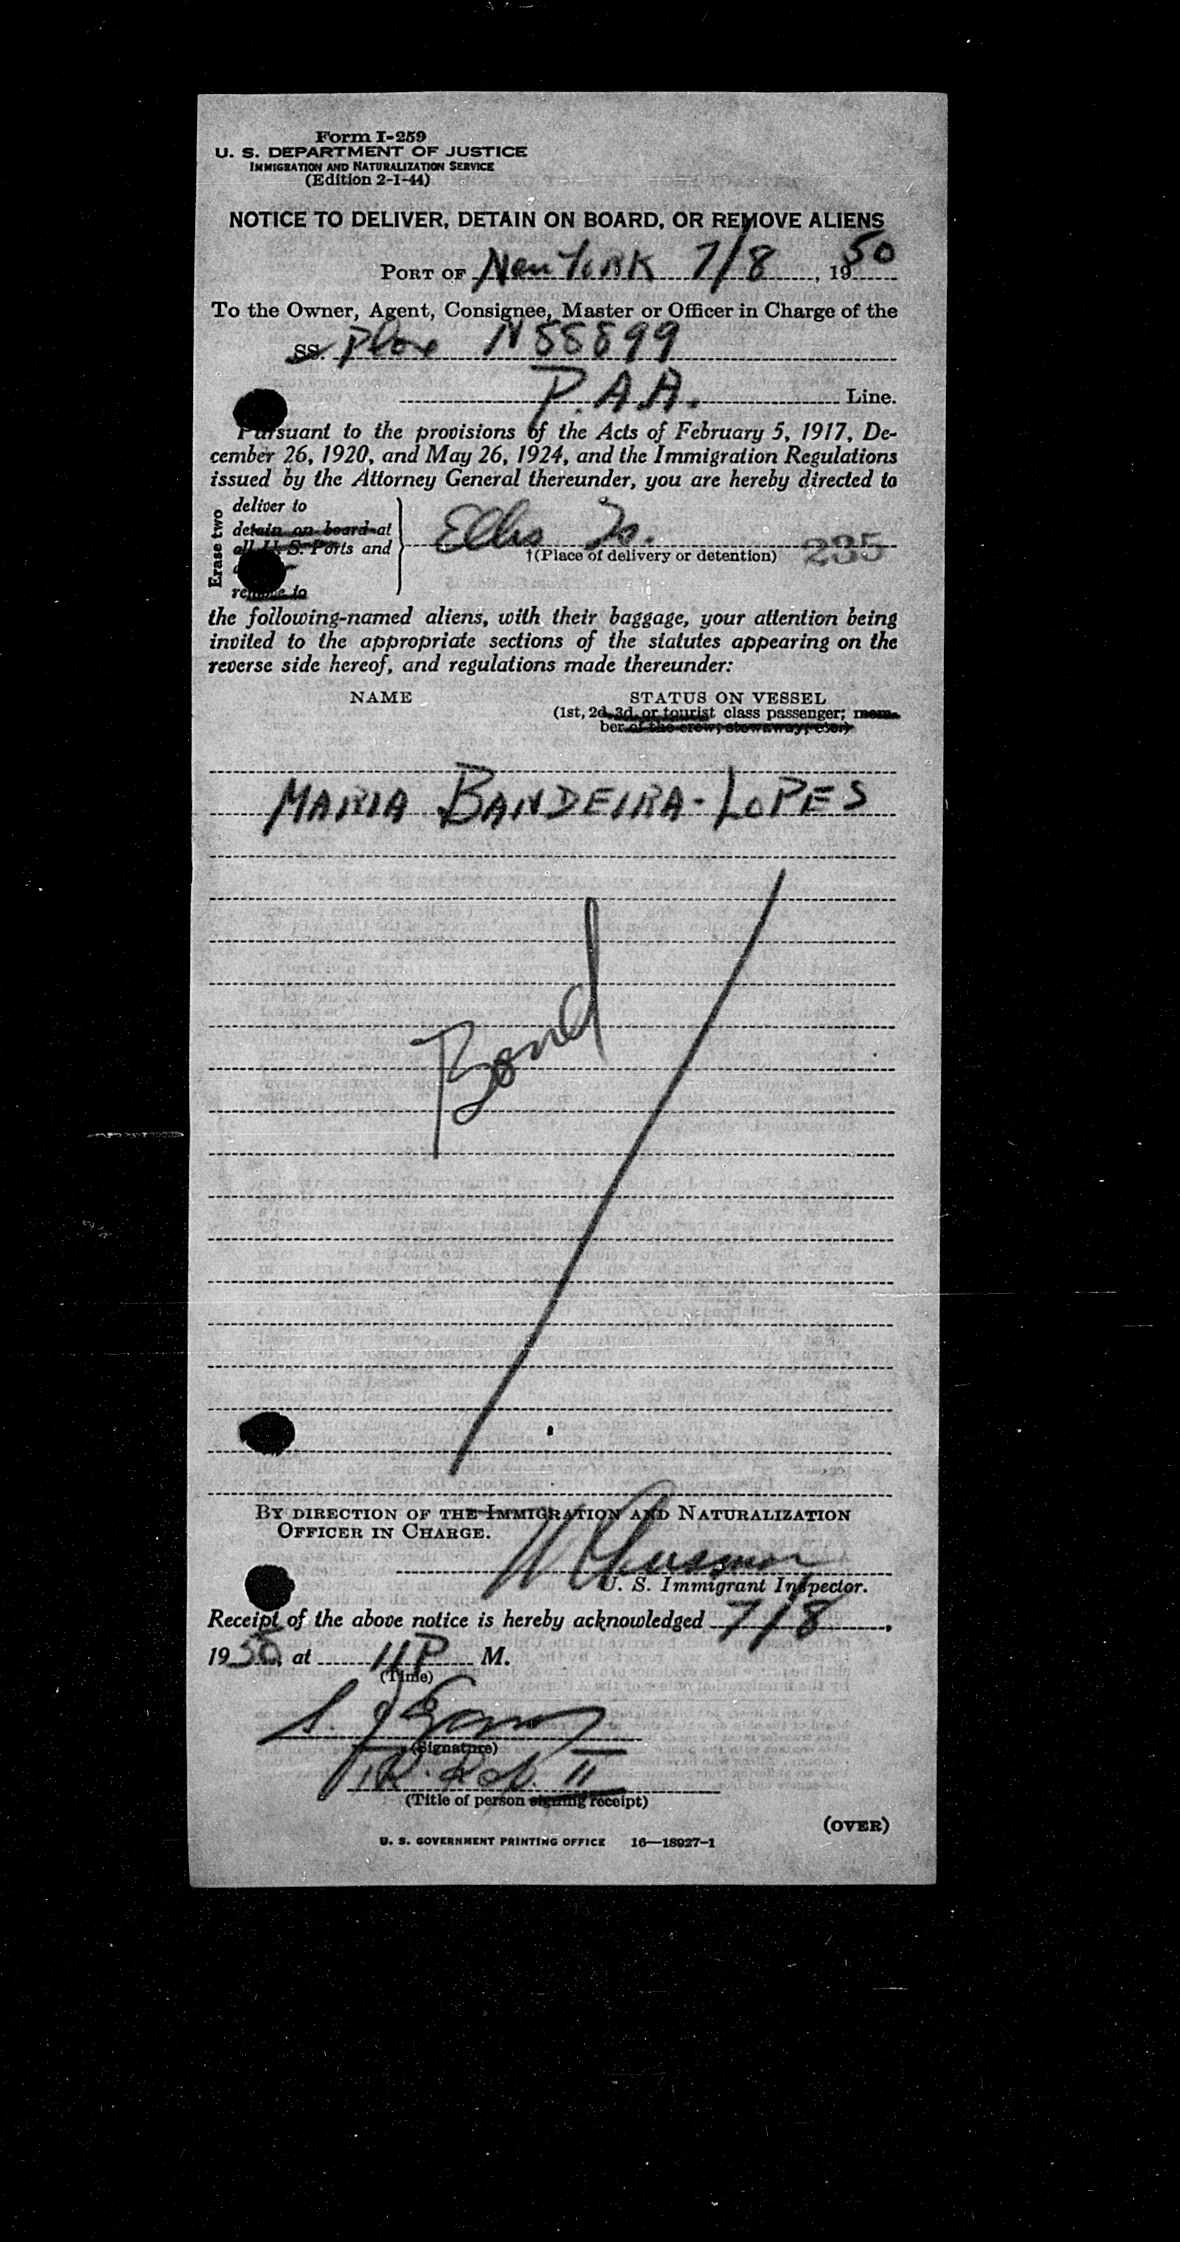 Form I-259
U. S. DEPARTMENT OF JUSTICE
IMMIGRATION AND NATURALIZATION SERVICE
(Edition 2-1-44)
NOTICE TO DELIVER, DETAIN ON BOARD, OR REMOVE ALIENS
PORT OF New York 7/8, 1950
To the Owner, Agent, Consignee, Master or Officer in Charge of the
SS. Plane N88899
P.A.A. Line.
Pursuant to the provisions of the Acts of February 5, 1917, De-
cember 26, 1920, and May 26, 1924, and the Immigration Regulations
issued by the Attorney General thereunder, you are hereby directed to
Erase two
deliver to
detain on board at
all U. S. Ports and
remove to
Ellis Is.
†(Place of delivery or detention) 235
the following-named aliens, with their baggage, your attention being
invited to the appropriate sections of the statutes appearing on the
reverse side hereof, and regulations made thereunder:
NAME STATUS ON VESSEL
(1st, 2d, 3d, or tourist class passenger; mem-
ber of the crew; stowaway; etc.)
MARIA BANDEIRA-LOPES
Bond
BY DIRECTION OF THE IMMIGRATION AND NATURALIZATION
OFFICER IN CHARGE.
U. S. Immigrant Inspector.
Receipt of the above notice is hereby acknowledged 7/8,
1950, at 11 P M.
(Time)
S. J.
(Signature)
II
(Title of person signing receipt)
(OVER)
U. S. GOVERNMENT PRINTING OFFICE 16—18927-1